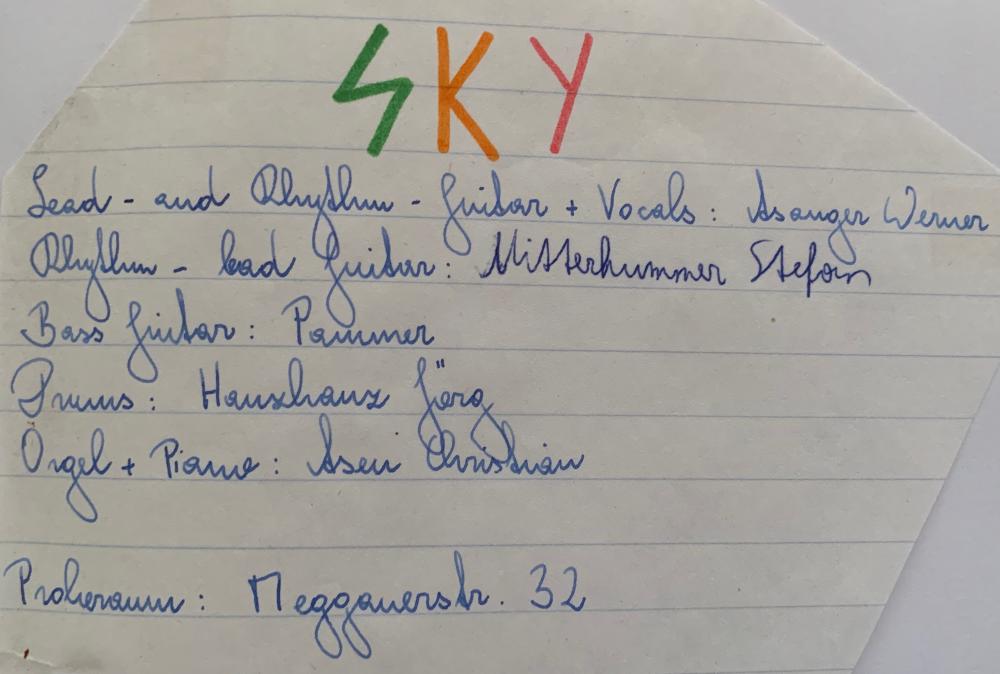 SKY
Lead - and Rhythm - Guitar + Vocals : Asanger Werner
Rhythm - lead Guitar : Mitterhummer Stefan
Bass Guitar : Pammer
Drums : Jörg
Orgel + Piano : Asen Christian
Proberaum : Meggauerstr. 32